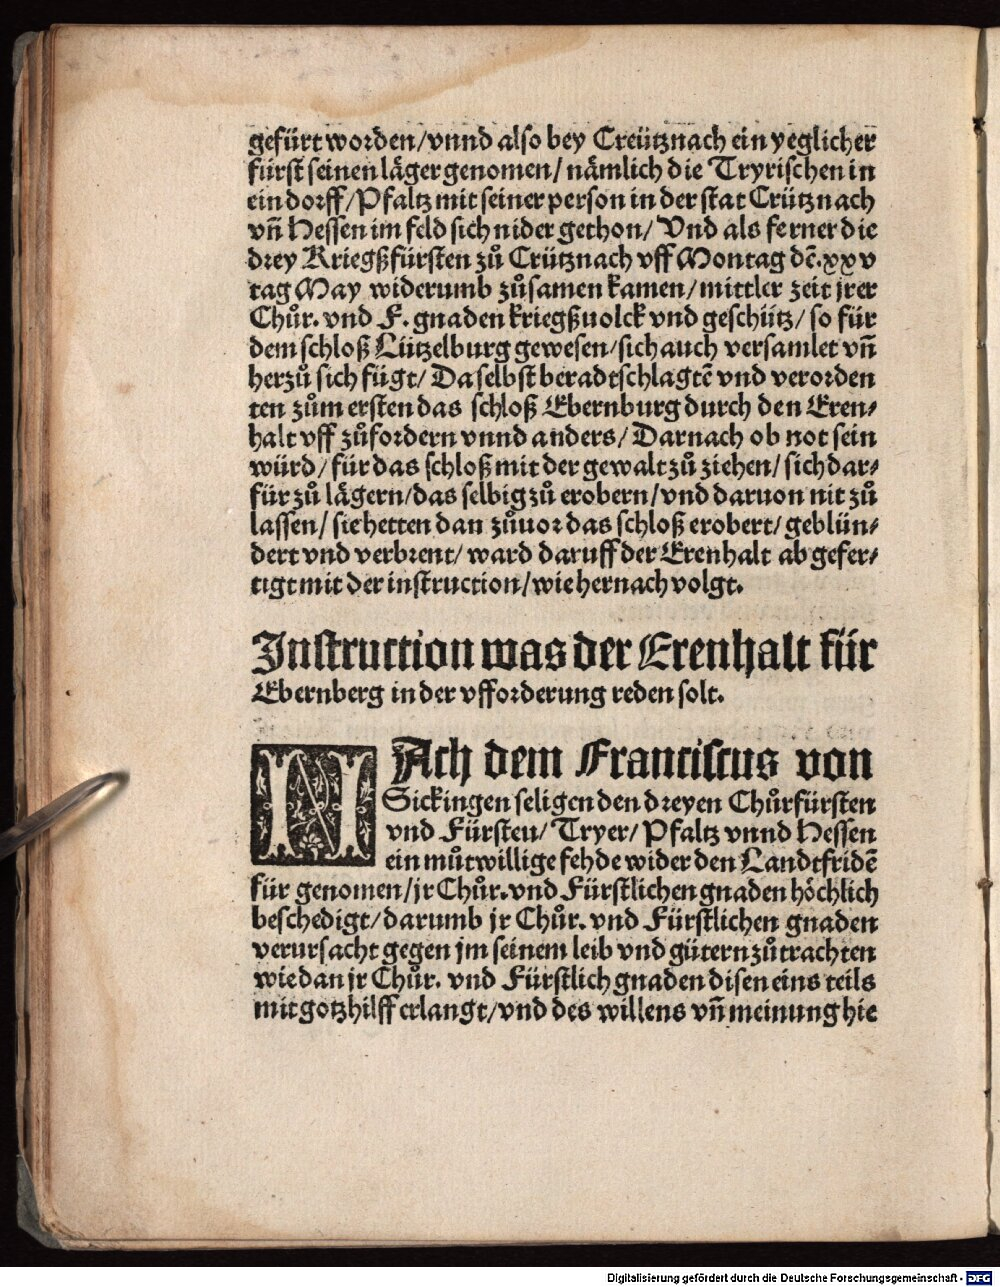 gefürt worden/vnnd also bey Creütznach ein yeglicher
fürst seinen läger genomen/ nämlich die Tryrischen in
ein dorff/Pfaltz mit seiner person in der stat Crütznach
vn̄ Hessen im feld sich nider gethon/ Vnd als ferner die
drey Kriegßfürsten zů Crütznach vff Montag dē.xxv
tag May widerumb zůsamen kamen/mittler zeit jrer
Chůr. vnd F. gnaden kriegßuolck vnd geschütz/ so für
dem schloß Lützelburg gewesen/sich auch versamlet vn̄
herzů sich fügt/ Daselbst beradtschlagtē vnd verorden
ten zům ersten das schloß Ebernburg durch den Eren⸗
halt vff zůfordern vnnd anders/ Darnach ob not sein
würd/für das schloß mit der gewalt zů ziehen/ sich dar⸗
für zů lägern/das selbig zů erobern/vnd daruon nit zů
lassen/ sie hetten dan zůuor das schloß erobert/ geblün⸗
dert vnd verbrent/ ward daruff der Erenhalt ab gefer⸗
tigt mit der instruction/wie hernach volgt.
Instruction was der Erenhalt für
Ebernberg in der vfforderung reden solt.
NAch dem Franciscus von
Sickingen seligen den dreyen Chůrfürsten
vnd Fürsten/ Tryer/ Pfaltz vnnd Hessen
ein můtwillige fehde wider den Landtfridē
für genomen/jr Chůr.vnd Fürstlichen gnaden höchlich
beschedigt/darumb jr Chůr. vnd Fürstlichen gnaden
verursacht gegen jm seinem leib vnd gütern zůtrachten
wie dan jr Chůr. vnd Fürstlich gnaden disen eins teils
mit gotz hilff erlangt/vnd des willens vn̄ meinung hie
Digitalisierung gefördert durch die Deutsche Forschungsgemeinschaft - DFG